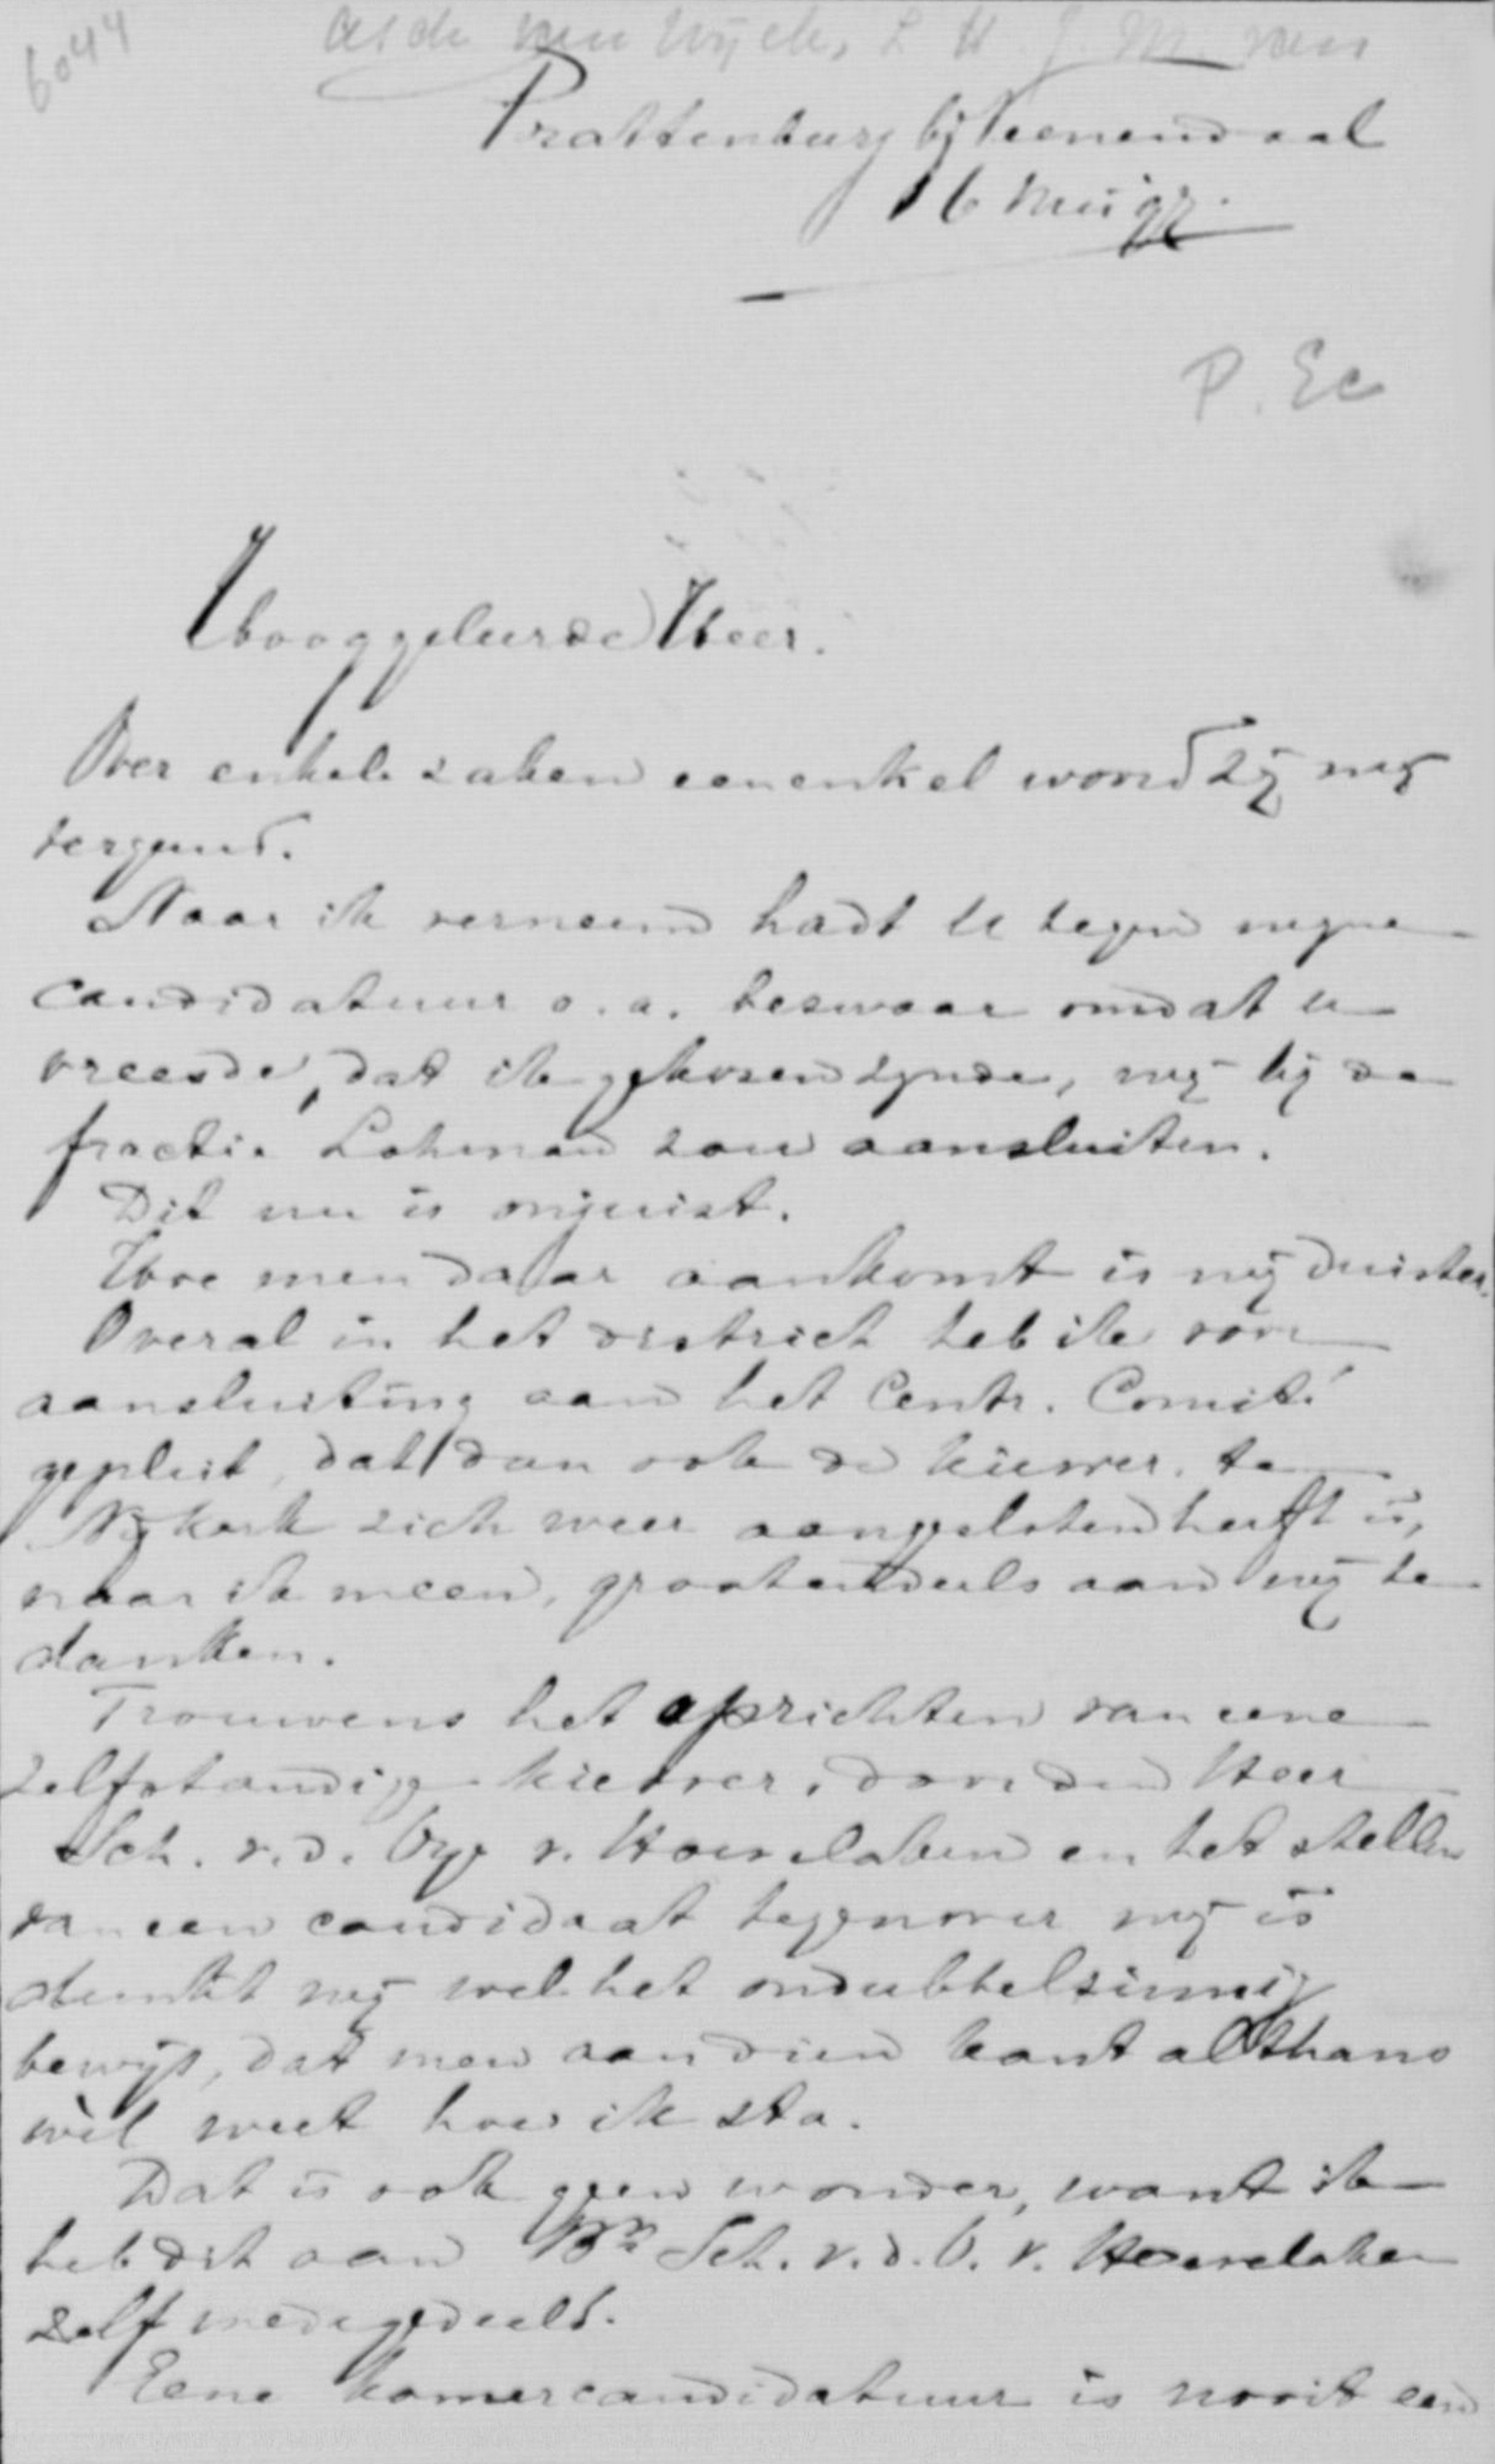 6044
Asch van Wijck, L H. J. M. van
Prattenburg bij Veenendaal
16 Mei 97.
P. Ec
Hooggeleerde Heer.
Over enkele zaken een enkel woord zij mij
vergund.
Naar ik verneem hadt U tegen mijne
candidatuur o.a. bezwaar omdat u
vreesde, dat ik gekozen zijnde, mij bij de
fractie Lohman zou aansluiten.
Dit nu is onjuist.
Hoe men daar aankomt is mij duister.
Overal in het district heb ik voor
aansluiting aan het Centr. Comité
gepleit, dat dan ook de kiesver. te
Nijkerk zich weer aangesloten heeft is,
naar ik meen, grootendeels aan mij te
danken.
Trouwens het oprichten van eene
zelfstandige kiesver. door den Heer
Sch. v. d. Oye v. Hoevelaken en het stellen
van een candidaat tegenover mij is
dunkt mij wel het ondubbelzinnig
bewijs, dat men aan dien kant althans
wèl weet hoe ik sta.
Dat is ook geen wonder, want ik
heb dit aan Bn Sch. v. d. O. v. Hoevelaken
zelf medegedeeld.
Eene kamercandidatuur is nooit een